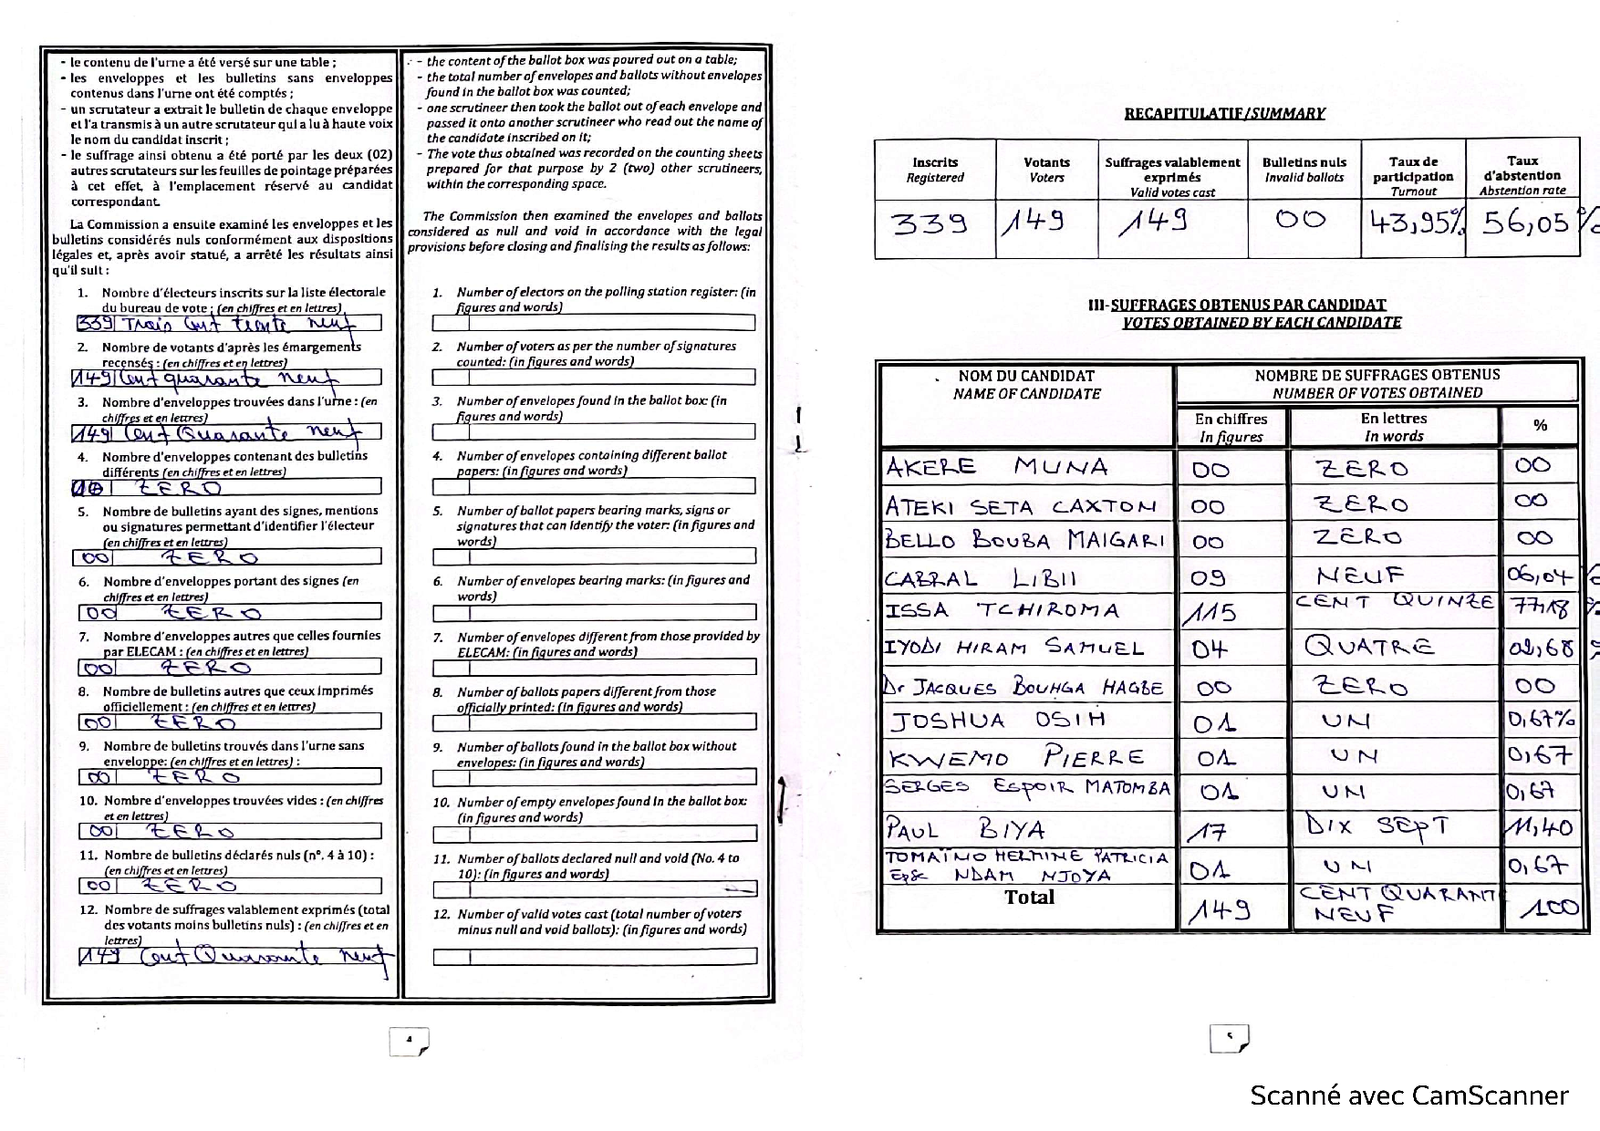 - le contenu de l'urne a été versé sur une table ;
- les enveloppes et les bulletins sans enveloppes
contenus dans l'urne ont été comptés ;
- un scrutateur a extrait le bulletin de chaque enveloppe
et l'a transmis à un autre scrutateur qui a lu à haute voix
le nom du candidat inscrit ;
- le suffrage ainsi obtenu a été porté par les deux (02)
autres scrutateurs sur les feuilles de pointage préparées
à cet effet, à l'emplacement réservé au candidat
correspondant.
La Commission a ensuite examiné les enveloppes et les
bulletins considérés nuls conformément aux dispositions
légales et, après avoir statué, a arrêté les résultats ainsi
qu'il suit :
1. Nombre d'électeurs inscrits sur la liste électorale
du bureau de vote : (en chiffres et en lettres)
339 Trois Cent trente neuf
2. Nombre de votants d'après les émargements
recensés : (en chiffres et en lettres)
149 Cent quarante neuf
3. Nombre d'enveloppes trouvées dans l'urne : (en
chiffres et en lettres)
149 Cent Quarante neuf
4. Nombre d'enveloppes contenant des bulletins
différents (en chiffres et en lettres)
ZERO
5. Nombre de bulletins ayant des signes, mentions
ou signatures permettant d'identifier l'électeur
(en chiffres et en lettres)
00 ZERO
6. Nombre d'enveloppes portant des signes (en
chiffres et en lettres)
00 ZERO
7. Nombre d'enveloppes autres que celles fournies
par ELECAM : (en chiffres et en lettres)
00 ZERO
8. Nombre de bulletins autres que ceux imprimés
officiellement : (en chiffres et en lettres)
00 ZERO
9. Nombre de bulletins trouvés dans l'urne sans
enveloppe: (en chiffres et en lettres) :
00 ZERO
10. Nombre d'enveloppes trouvées vides : (en chiffres
et en lettres)
00 ZERO
11. Nombre de bulletins déclarés nuls (n°. 4 à 10) :
(en chiffres et en lettres)
00 ZERO
12. Nombre de suffrages valablement exprimés (total
des votants moins bulletins nuls) : (en chiffres et en
lettres)
149 Cent Quarante neuf
- the content of the ballot box was poured out on a table;
- the total number of envelopes and ballots without envelopes
found in the ballot box was counted;
- one scrutineer then took the ballot out of each envelope and
passed it onto another scrutineer who read out the name of
the candidate inscribed on it;
- The vote thus obtained was recorded on the counting sheets
prepared for that purpose by 2 (two) other scrutineers,
within the corresponding space.
The Commission then examined the envelopes and ballots
considered as null and void in accordance with the legal
provisions before closing and finalising the results as follows:
1. Number of electors on the polling station register: (in
figures and words)
2. Number of voters as per the number of signatures
counted: (in figures and words)
3. Number of envelopes found in the ballot box: (in
figures and words)
4. Number of envelopes containing different ballot
papers: (in figures and words)
5. Number of ballot papers bearing marks, signs or
signatures that can identify the voter: (in figures and
words)
6. Number of envelopes bearing marks: (in figures and
words)
7. Number of envelopes different from those provided by
ELECAM: (in figures and words)
8. Number of ballots papers different from those
officially printed: (in figures and words)
9. Number of ballots found in the ballot box without
envelopes: (in figures and words)
10. Number of empty envelopes found in the ballot box:
(in figures and words)
11. Number of ballots declared null and void (No. 4 to
10): (in figures and words)
12. Number of valid votes cast (total number of voters
minus null and void ballots): (in figures and words)
4
RECAPITULATIF/SUMMARY
Inscrits Votants Suffrages valablement exprimés Bulletins nuls Taux de participation Taux d'abstention
Registered Voters Valid votes cast Invalid ballots Turnout Abstention rate
339 149 149 00 43,95% 56,05%
III-SUFFRAGES OBTENUS PAR CANDIDAT
VOTES OBTAINED BY EACH CANDIDATE
NOM DU CANDIDAT NOMBRE DE SUFFRAGES OBTENUS
NAME OF CANDIDATE NUMBER OF VOTES OBTAINED
En chiffres En lettres %
In figures In words
AKERE MUNA 00 ZERO 00
ATEKI SETA CAXTON 00 ZERO 00
BELLO BOUBA MAIGARI 00 ZERO 00
CABRAL LIBII 09 NEUF 06,04 %
ISSA TCHIROMA 115 CENT QUINZE 77,18 %
IYODI HIRAM SAMUEL 04 QUATRE 02,68 %
Dr JACQUES BOUHGA HAGBE 00 ZERO 00
JOSHUA OSIH 01 UN 0,67%
KWEMO PIERRE 01 UN 0,67
SERGES ESPOIR MATOMBA 01 UN 0,67
PAUL BIYA 17 DIX SEPT 11,40
TOMAÏNO HERMINE PATRICIA
Epse NDAM NJOYA 01 UN 0,67
Total 149 CENT QUARANT
NEUF 100
5
Scanné avec CamScanner